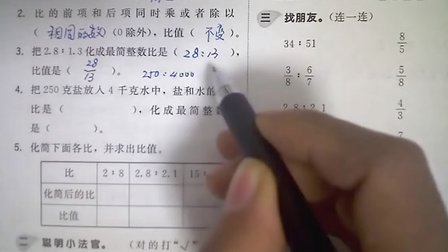 2. 比的前项和后项同时乘或者除以
(相同的数)(0除外),比值(不变)
3. 把2.8:1.3化成最简整数比是(28:13),
比值是(28/13)。 250:4000
4. 把250克盐放入4千克水中,盐和水的
比是( ),化成最简整数
比是( )。
5. 化简下面各比,并求出比值。
比 2:8 2.8:2.1 15:
化简后的比
比值
二 聪明小法官。(对的打"√"
三 找朋友。(连一连)
34:51 8/5
3/8:6/7 5/8
2.8:2.1